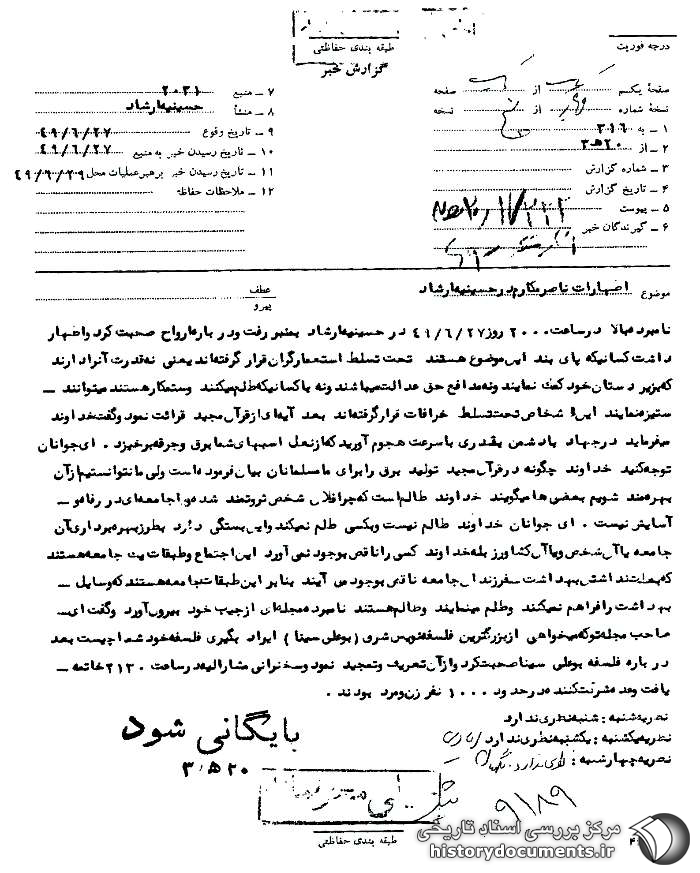 طبقه بندی حفاظتی
گزارش خبر
درجه فوریت
صفحهٔ یکم از صفحه
نسخهٔ شماره از نسخه
۱ ـ به ۳۱۶
۲ ـ از ۲۰ﻫ۳
۳ ـ شماره گزارش
۴ ـ تاریخ گزارش
۵ ـ پیوست
۶ ـ گیرندگان خبر
۷ ـ منبع ۲۰۳۱
۸ ـ منشأ حسینیه ارشاد
۹ ـ تاریخ وقوع ۴۹/۶/۲۷
۱۰ ـ تاریخ رسیدن خبر به منبع ۴۹/۶/۲۷
۱۱ ـ تاریخ رسیدن خبر برهبر عملیات محل ۴۹/۶/۲۹
۱۲ ـ ملاحظات حفاظتی
موضوع اظهارات ناصر مکارم در حسینیه ارشاد
عطف
پیرو
نامبرده بالا در ساعت ۲۰۰۰ روز ۴۹/۶/۲۷ در حسینیه ارشاد بمنبر رفت و در باره ارواح صحبت کرد و اظهار
داشت کسانیکه پای بند این موضوع هستند تحت تسلط استعمارگران قرار گرفته اند یعنی نه قدرت آنرا دارند
که بزیر دستان خود کمک نمایند و نه مدافع حق عدالت میباشند و نه با کسانیکه ظلم میکنند و ستمکار هستند میتوانند ـ
ستیزه نمایند این اشخاص تحت تسلط خرافات قرار گرفته اند بعد آیه ای از قرآن مجید قرائت نمود و گفت خداوند
میفرماید در جهاد با دشمن بقدری با سرعت هجوم آورید که از نعل اسبهای شما برق و جرقه برخیزد . ای جوانان
توجه کنید خداوند چگونه در قرآن مجید تولید برق را برای ما مسلمانان بیان فرموده است ولی ما نتوانستیم از آن
بهره مند شویم بعضی ها میگویند خداوند ظالم است که چرا فلان شخص ثروتمند شده و یا جامعه ای در رفاه و ـ
آسایش نیست . ای جوانان خداوند ظالم نیست و بکسی ظلم نمیکند و این بستگی دارد بطرز بهره برداری آن
جامعه یا آن شخص و یا آن کشاورز بله خداوند کسی را ناقص بوجود نمی آورد این اجتماع و طبقات یک جامعه هستند
که بعلت نداشتن بهداشت سفرزندان جامعه ناقص بوجود می آیند بنابر این طبقات جامعه هستند که وسایل ـ
بهداشت را فراهم نمیکنند و ظلم مینمایند و ظالم هستند نامبرده مجله ای از جیب خود بیرون آورد و گفت ای ـ
صاحب مجله تو که میخواهی از بزرگترین فلسفه نویس شرق ( بوعلی سینا ) ایراد بگیری فلسفه خود شما چیست بعد
در باره فلسفه بوعلی سینا صحبت کرد و از آن تعریف و تمجید نمود و سخنرانی مشارالیه در ساعت ۲۱۳۰ خاتمه ـ
یافت و عده شرکت کننده در حدود ۱۰۰۰ نفر زن و مرد بودند .
نظریه شنبه : شنبه نظری ندارد
نظریه یکشنبه : یکشنبه نظری ندارد
نظریه چهارشنبه : نظری ندارد
بایگانی شود
۲۰ﻫ۳
۹۱۸۹
طبقه بندی حفاظتی
مرکز بررسی اسناد تاریخی
historydocuments.ir